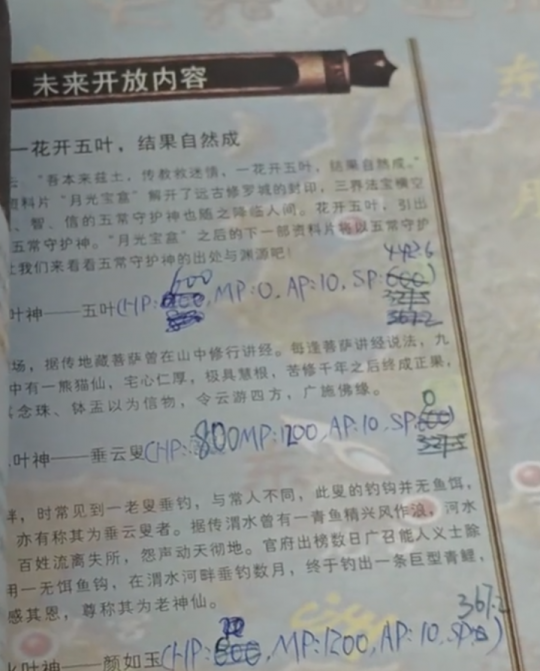 未来开放内容
一花开五叶，结果自然成
“吾本来兹土，传教救迷情，一花开五叶，结果自然成。”
资料片“月光宝盒”解开了远古修罗城的封印，三界法宝横空
、智、信的五常守护神也随之降临人间。花开五叶，引出
五常守护神。“月光宝盒”之后的下一部资料片将以五常守护
让我们来看看五常守护神的出处与渊源吧！
叶神——五叶(HP:600, MP:0, AP:10, SP:4426)
场，据传地藏菩萨曾在山中修行讲经。每逢菩萨讲经说法，九
中有一熊猫仙，宅心仁厚，极具慧根，苦修千年之后终成正果，
念珠、钵盂以为信物，令云游四方，广施佛缘。
叶神——垂云叟(HP:800 MP:1200, AP:10, SP:0
畔，时常见到一老叟垂钓，与常人不同，此叟的钓钩并无鱼饵，
亦有称其为垂云叟者。据传渭水曾有一青鱼精兴风作浪，河水
百姓流离失所，怨声动天彻地。官府出榜数日广召能人义士除
用一无饵鱼钩，在渭水河畔垂钓数月，终于钓出一条巨型青鲤，
感其恩，尊称其为老神仙。
叶神——颜如玉(HP: MP:1200, AP:10, SP:3672)